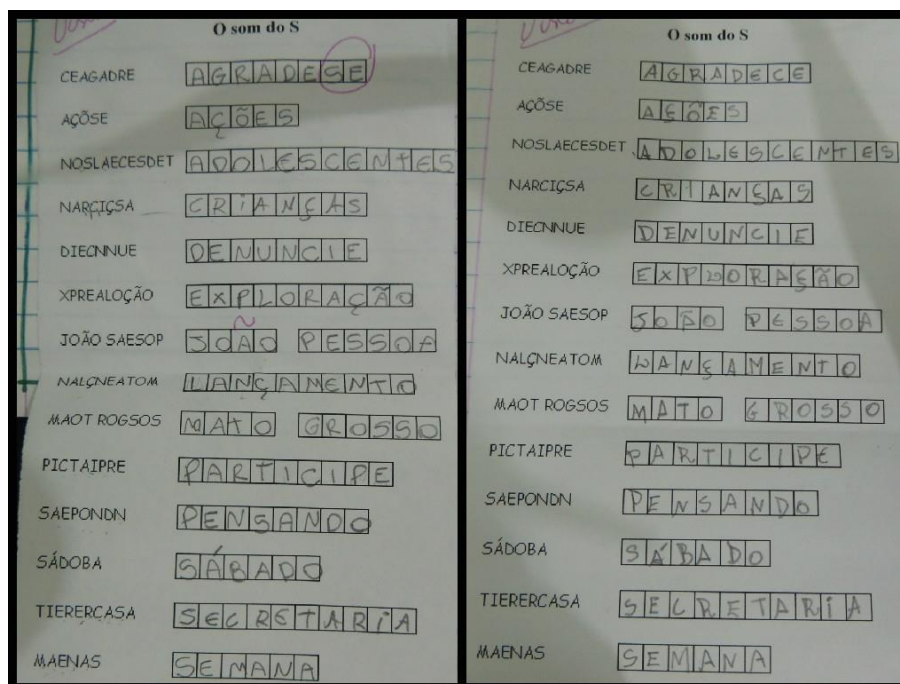 O som do S
CEAGADRE AGRADESE
AÇÕSE AÇÕES
NOSLAECESDET ADOLESCENTES
NARCIÇSA CRIANÇAS
DIECNNUE DENUNCIE
XPREALOÇÃO EXPLORAÇÃO
JOÃO SAESOP JOÃO PESSOA
NALÇNEATOM LANÇAMENTO
MAOT ROGSOS MATO GROSSO
PICTAIPRE PARTICIPE
SAEPONDN PENSANDO
SÁDOBA SÁBADO
TIERERCASA SECRETARIA
MAENAS SEMANA
O som do S
CEAGADRE AGRADECE
AÇÕSE AÇÕES
NOSLAECESDET ADOLESCENTES
NARCIÇSA CRIANÇAS
DIECNNUE DENUNCIE
XPREALOÇÃO EXPLORAÇÃO
JOÃO SAESOP JOÃO PESSOA
NALÇNEATOM LANÇAMENTO
MAOT ROGSOS MATO GROSSO
PICTAIPRE PARTICIPE
SAEPONDN PENSANDO
SÁDOBA SÁBADO
TIERERCASA SECRETARIA
MAENAS SEMANA